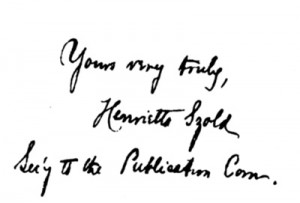 Yours very truly,
Henrietta Szold
Sec'y to the Publication Com.